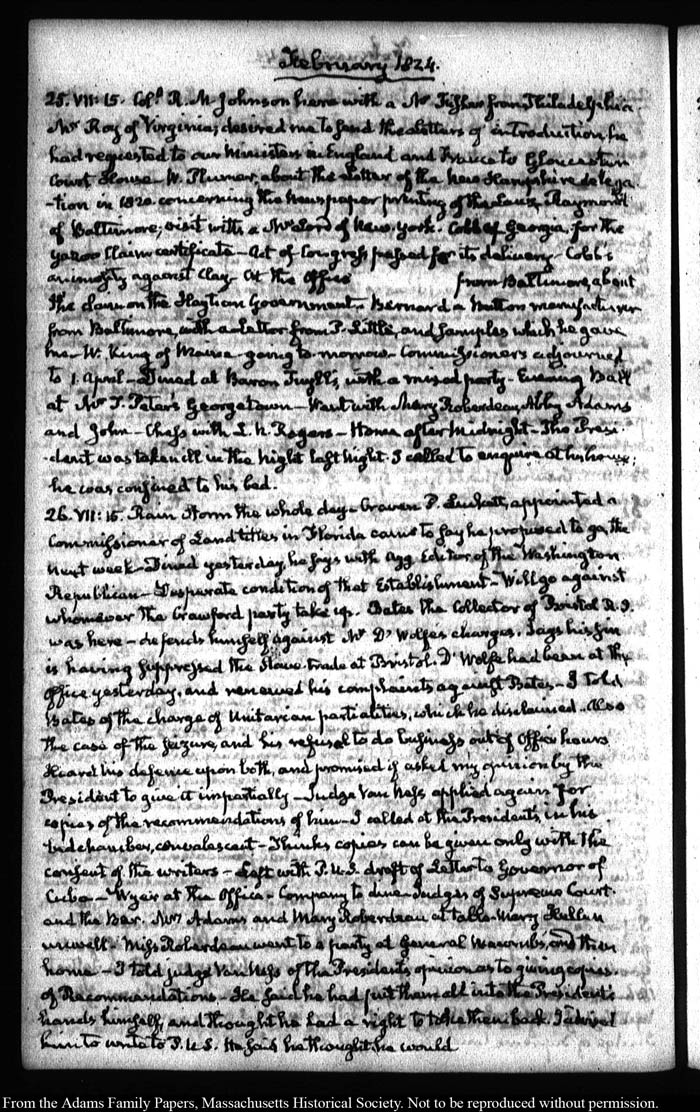 February 1824.
25. VII:15. Col. R. M Johnson here with a Mr Fisher from Philadelphia
Mr Roy of Virginia; desired me to send the letters of introduction he
had requested to our Ministers in England and France to Gloucester
Court House. W. Plumer, about the Letter of the New Hampshire delega
-tion in 1820 concerning the Newspaper printing of the Laws. Raymond
of Baltimore; visit with a Mr Lord of New-York. Cobb of Georgia, for the
Yazoo Claim certificate - Act of Congress passed for its delivery - Cobb's
animosity against Clay. At the Office from Baltimore, about
the claim on the Haytian Government. Bernard a Button manufacturer
from Baltimore, with a Letter from P. Little, and samples which he gave
me - W. King of Maine - going to-morrow - Commissioners adjourned
to 1. April - Dined at Baron Tuyll's, with a mixed party - Evening Ball
at Mr T. Peter's Georgetown - Went with Mary Roberdeau, Abby Adams
and John - Chess with Rogers - Home after Midnight - The Presi
-dent was taken ill in the Night last Night. I called to enquire at his house;
he was confined to his bed.
26. VII:15. Rain Storm the whole day - Craven P. Luckett, appointed a
Commissioner of Land titles in Florida came to say he proposed to go the
next week - Dined yesterday, he says with Agg Editor of the Washington
Republican - Desperate condition of that Establishment - Will go against
whomever the Crawford party take up. Bates the Collector of Bristol R.I.
was here - defends himself against Mr D'Wolfe's charges. Says his sin
is having suppressed the Slave-trade at Bristol. D'Wolfe had been at the
Office yesterday, and renewed his complaints against Bates - I told
Bates of the charge of Unitarian partialities, which he disclaimed. Also
the case of the seizure, and his refusal to do business out of Office hours
Heard his defence upon both, and promised if asked my opinion by the
President to give it impartially - Judge Van Ness applied again for
copies of the recommendations of him - I called at the President's, in his
bedchamber, convalescent - Thinks copies can be given only with the
consent of the writers - Left with P.U.S. draft of Letter to Governor of
Cuba - Wyer at the Office - Company to dine - Judges of Supreme Court.
and the Bar. Mrs Adams and Mary Roberdeau at table. Mary Hellen
unwell - Miss Roberdeau went to a party at General Macomb's, and then
home - I told judge Van Ness of the President's opinion as to giving copies
of Recommendations - He said he had put them all into the President's
hands himself, and thought he had a right to take them back. I advised
him to write to P.U.S. He said he thought he would
From the Adams Family Papers, Massachusetts Historical Society. Not to be reproduced without permission.